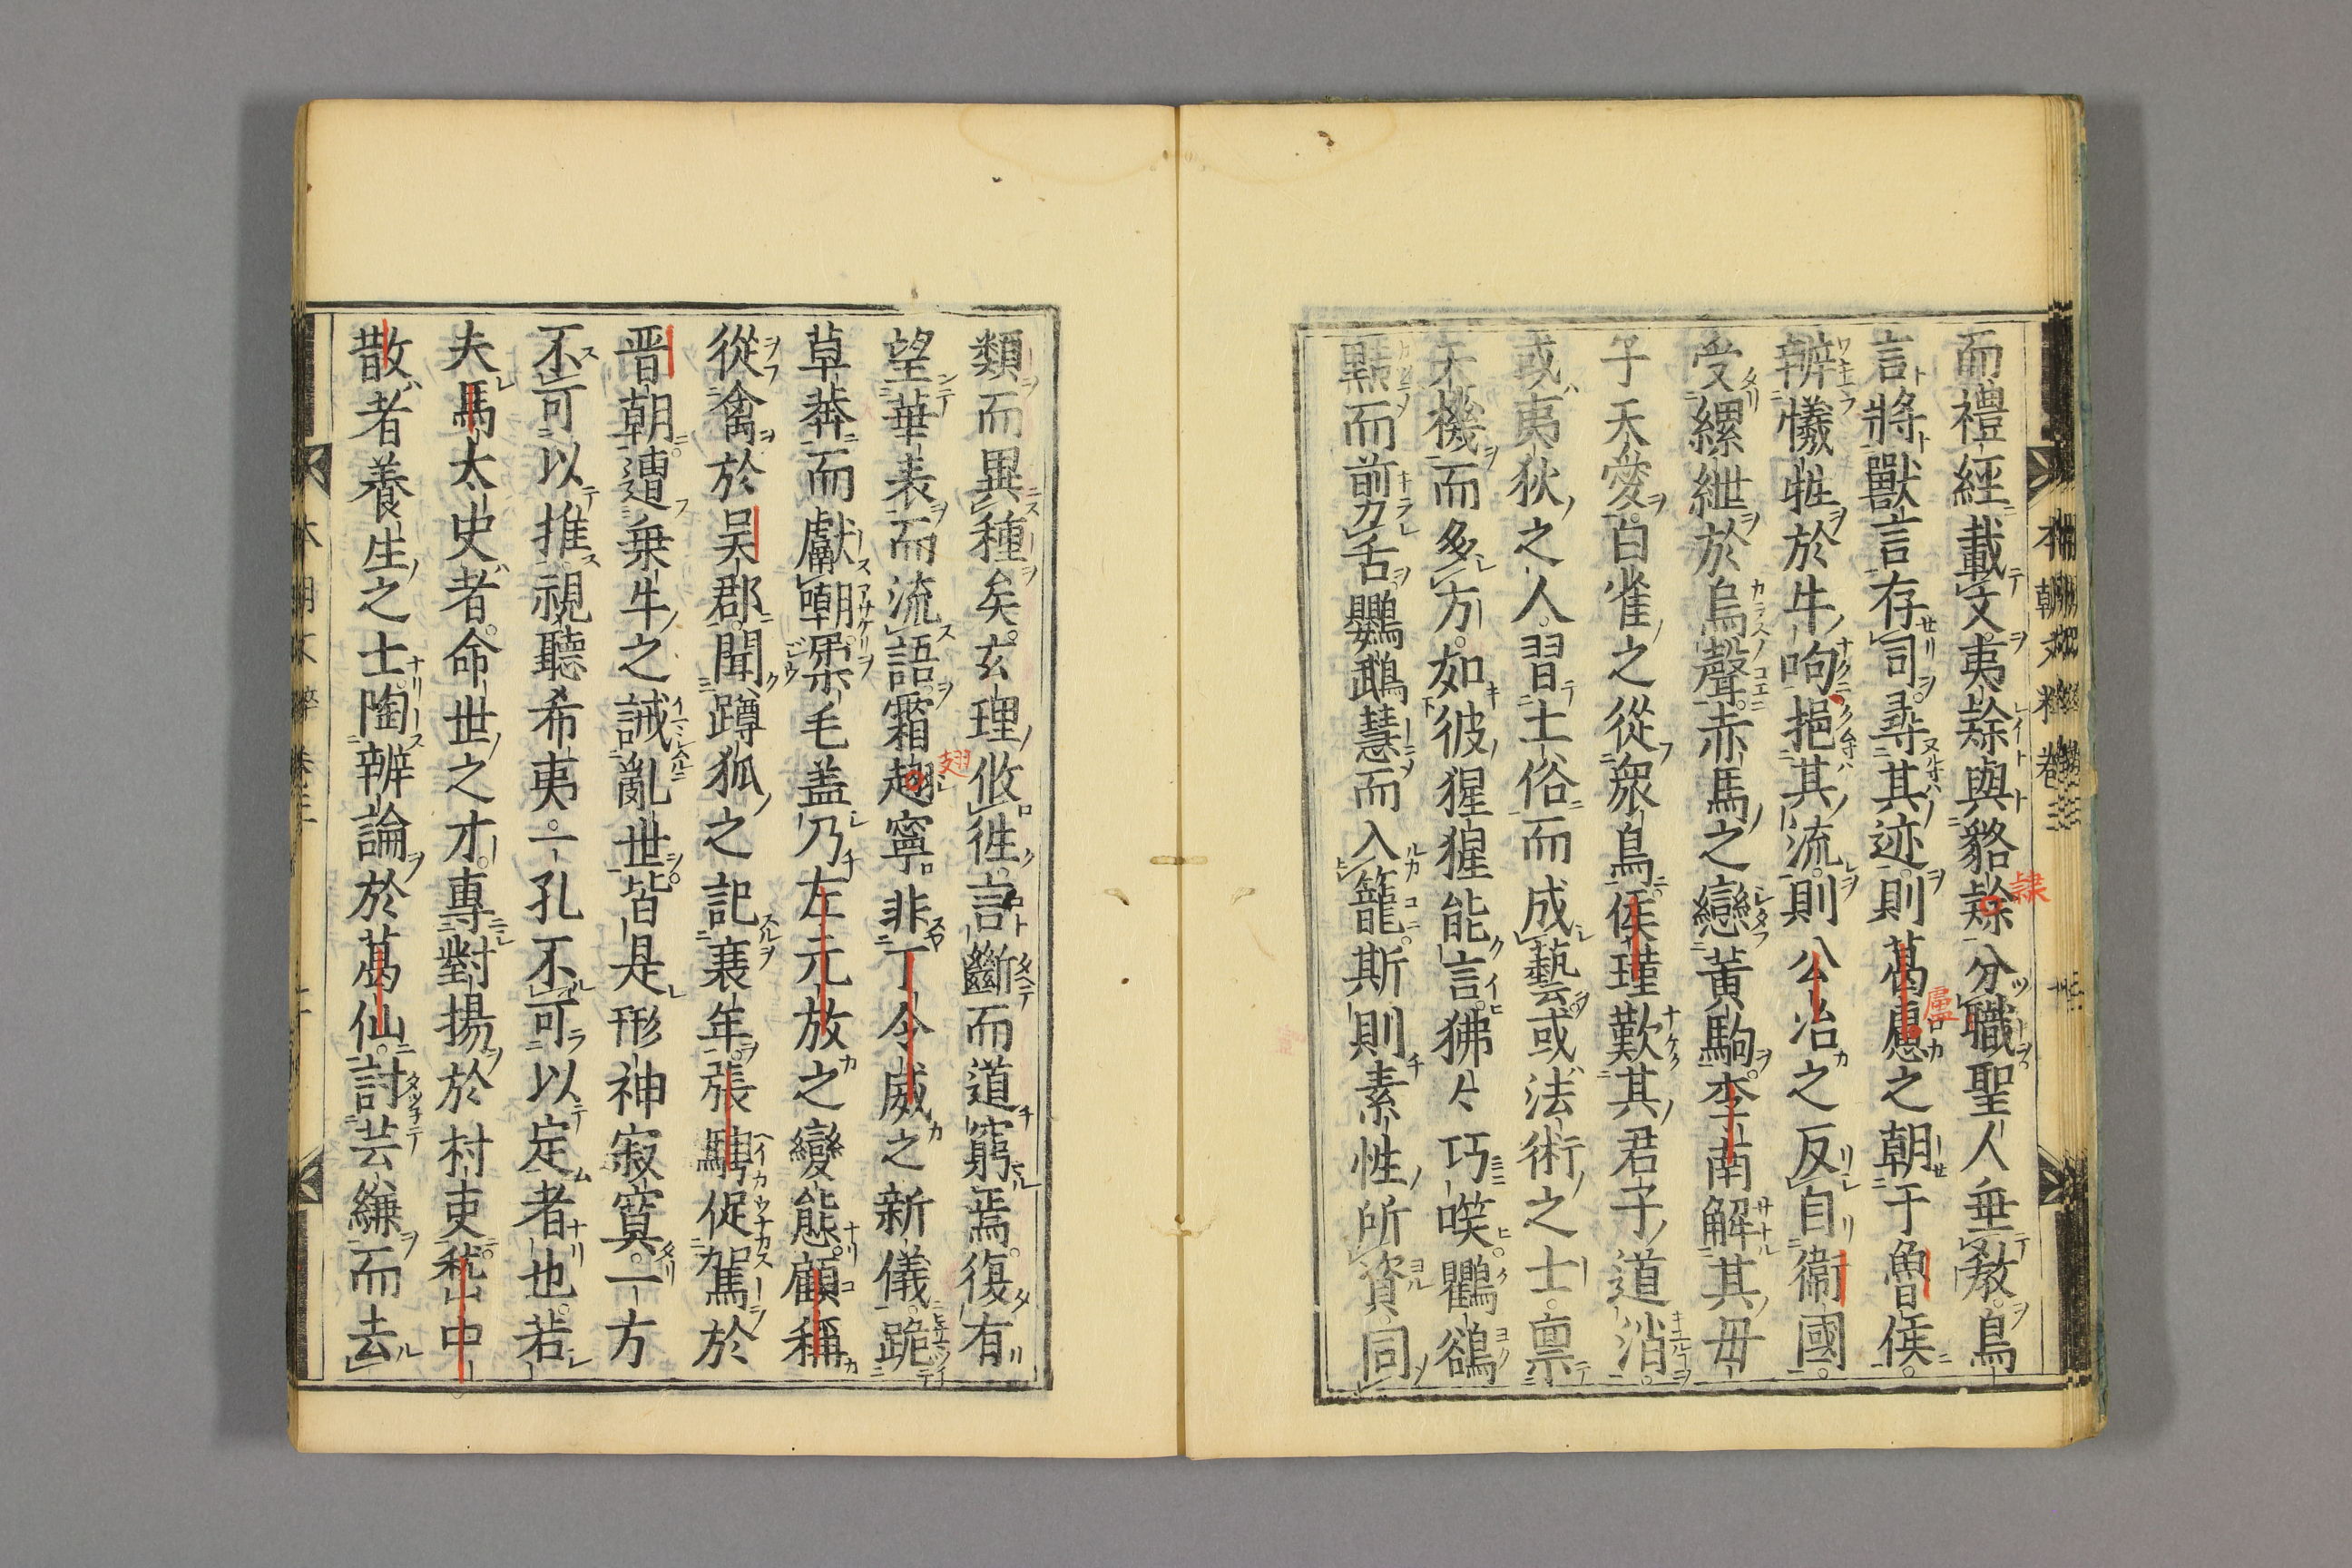 而禮經載文夷隸與貉隸分職聖人垂教鳥
言將獸言存司尋其迹則葛慮之朝于魯侯
辨犧牲於牛呴挹其流則公冶之反自衛國
受縲紲於烏聲赤馬之戀黃駒李南解其毋
子天愛白雀之從衆鳥侯瑾歎其君子道消
或夷狄之人習土俗而成藝或法術之士禀
天機而多方如彼猩猩能言狒〻巧𠹌鸜鵒
點而前剪舌鸚鵡慧而入籠斯則素性所資同
類而異種矣玄理攸徃言斷而道窮焉復有
望華表而流語霜翅寧非丁令威之新儀跪
草莽而獻嘲孱毛盖乃左元放之變態顧稱
從禽於吳郡聞蹲狐之記衰年張騁促駕於
晋朝遭乗牛之誡亂世皆是形神寂寞一方
不可以推視聽希夷一孔不可以定者也若
夫馬太史者命世之才專對揚於村吏嵇中
散者養生之士陶辨論於葛仙討芸縑而去
本朝文粹卷三
翅
隸
盧